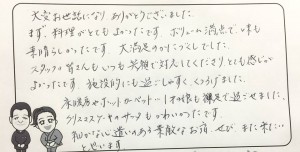 大変お世話になり、ありがとうございました。
まず、料理がとてもよかったです。ボリューム満点で、味も
素晴らしかったです。大満足のひとときでした。
スタッフの皆さんもいつも笑顔で対応してくださり、とても感じが
よかったです。施設的にも過ごしやすく、くつろげました。
床暖房やホットカーペット
クリスマスツリーやサンタもかわいかったです。
細かい心遣いのある素敵なお宿、ぜひ、また来たい
と思います